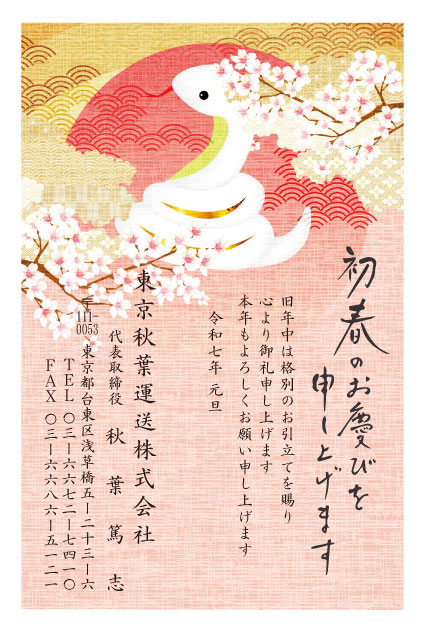 初春のお慶びを
申し上げます
旧年中は格別のお引立てを賜り
心より御礼申し上げます
本年もよろしくお願い申し上げます
令和七年 元旦
東京秋葉運送株式会社
代表取締役 秋葉篤志
〒111-0053
東京都台東区浅草橋五ー二十三ー六
TEL 〇三ー六六七二ー七四一〇
FAX 〇三ー六六八六ー五一二一